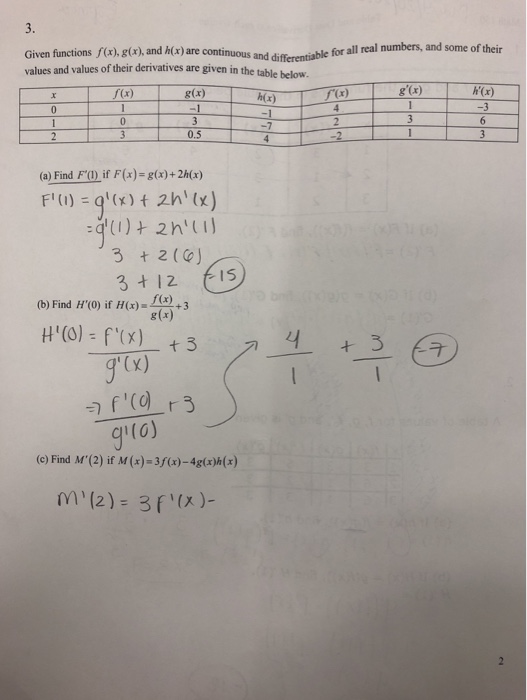 3.
Given functions f(x), g(x), and h(x) are continuous and differentiable for all real numbers, and some of their
values and values of their derivatives are given in the table below.
x f(x) g(x) h(x) f'(x) g'(x) h'(x)
0 1 -1 -1 4 1 -3
1 0 3 -7 2 3 6
2 3 0.5 4 -2 1 3
(a) Find F'(1) if F(x) = g(x) + 2h(x)
F'(1) = g'(x) + 2h'(x)
= g'(1) + 2h'(1)
3 + 2(6)
3 + 12 =15
(b) Find H'(0) if H(x) = f(x)/g(x) + 3
H'(0) = f'(x)/g'(x) + 3
⇒ f'(0)/g'(0) + 3
4/1 + 3/1 =7
(c) Find M'(2) if M(x) = 3f(x) − 4g(x)h(x)
M'(2) = 3f'(x) -
2